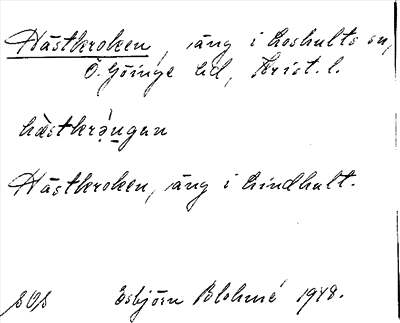 Hästkroken, äng i Loshults sn,
Ö. Göinge hd, Krist. l.
hästkrǫ̀ngan
Hästkroken, äng i Lindhult.
SOS Esbjörn Blohmé 1948.